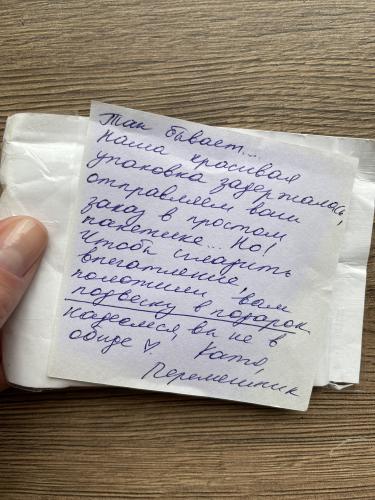 Так бывает...
наша красивая
упаковка задержалась,
отправляем вам
заказ в простом
пакетике... Но!
Чтобы сгладить
впечатление, вам
положили
подвеску в подарок
надеемся, вы не в
обиде ♡. Катя,
Перемешник